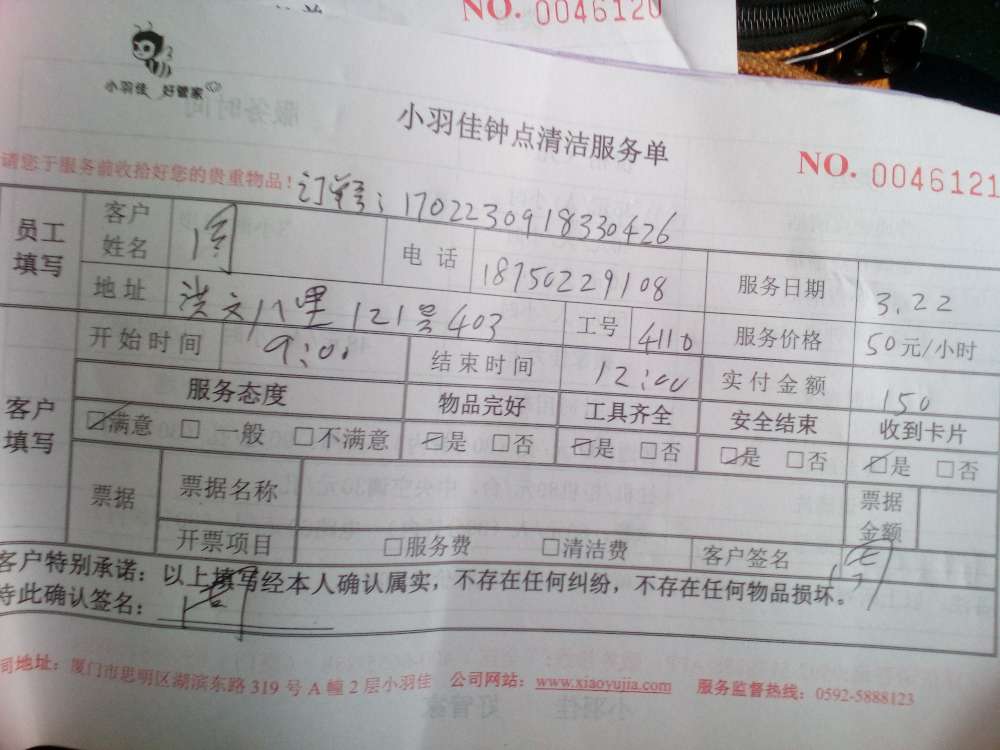 NO. 0046120
小羽佳 好管家
小羽佳钟点清洁服务单
NO. 0046121
请您于服务前收拾好您的贵重物品！
订单号：1702230918330426
员工填写 客户姓名 电话 18750229108 服务日期 3.22
地址 洪文八里121号403 工号 4110 服务价格 50元/小时
客户填写 开始时间 9:00 结束时间 12:00 实付金额 150
服务态度 物品完好 工具齐全 安全结束 收到卡片
☑满意 □一般 □不满意 ☑是 □否 ☑是 □否 ☑是 □否 ☑是 □否
票据 票据名称 票据金额
开票项目 □服务费 □清洁费 客户签名
客户特别承诺：以上填写经本人确认属实，不存在任何纠纷，不存在任何物品损坏。
特此确认签名：
司地址：厦门市思明区湖滨东路319号A幢2层小羽佳 公司网站：www.xiaoyujia.com 服务监督热线：0592-5888123